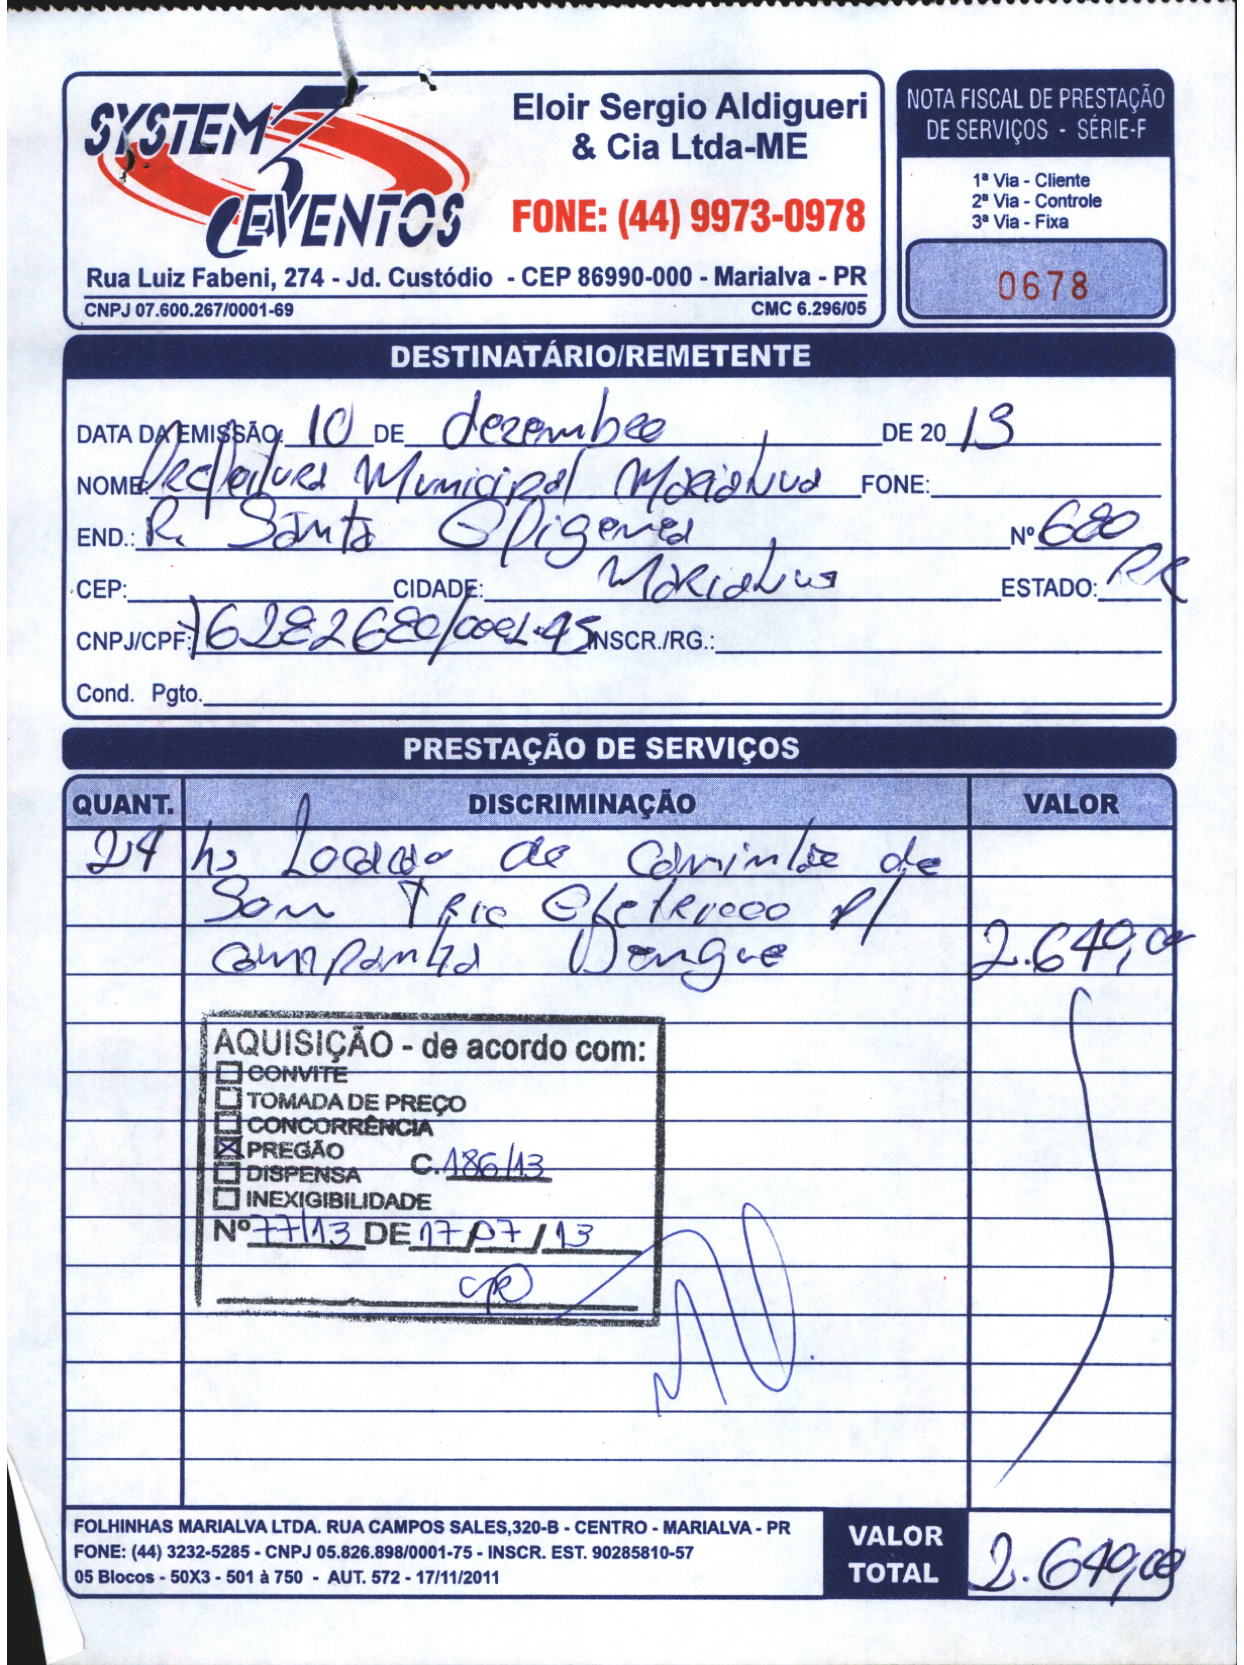 SYSTEM 3 EVENTOS
Eloir Sergio Aldigueri
& Cia Ltda-ME
FONE: (44) 9973-0978
Rua Luiz Fabeni, 274 - Jd. Custódio - CEP 86990-000 - Marialva - PR
CNPJ 07.600.267/0001-69 CMC 6.296/05
NOTA FISCAL DE PRESTAÇÃO
DE SERVIÇOS - SÉRIE-F
1ª Via - Cliente
2ª Via - Controle
3ª Via - Fixa
0678
DESTINATÁRIO/REMETENTE
DATA DA EMISSÃO: 10 DE dezembro DE 20 13
NOME: Prefeitura Municipal Marialva FONE:
END.: R. Santa Efigenea Nº 680
CEP: CIDADE: Marialva ESTADO: PR
CNPJ/CPF: 76282680/0001-45 INSCR./RG.:
Cond. Pgto.
PRESTAÇÃO DE SERVIÇOS
QUANT. DISCRIMINAÇÃO VALOR
24 hs Locação de Caminhão de
Som Trio Eletrico p/
campanha Dengue 2.640,00
AQUISIÇÃO - de acordo com:
CONVITE
TOMADA DE PREÇO
CONCORRÊNCIA
PREGÃO
DISPENSA C. 186/13
INEXIGIBILIDADE
Nº 77/13 DE 17/07/13
FOLHINHAS MARIALVA LTDA. RUA CAMPOS SALES,320-B - CENTRO - MARIALVA - PR
FONE: (44) 3232-5285 - CNPJ 05.826.898/0001-75 - INSCR. EST. 90285810-57
05 Blocos - 50X3 - 501 à 750 - AUT. 572 - 17/11/2011
VALOR
TOTAL 2.640,00